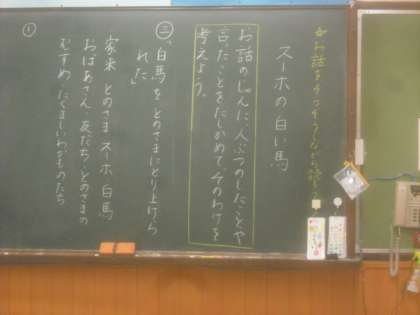 お話をそうぞうしながら読もう
スーホの白い馬
お話のじゅんに、人ぶつのしたことや
言ったことをたしかめて、そのわけを
考えよう。
㊂「白馬を とのさまにとり上げら
れた」
①
家来 とのさま スーホ 白馬
おばあさん 友だち とのさまの
むすめ たくましいわかものたち